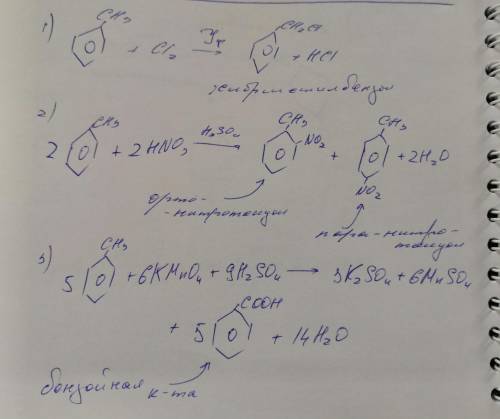 1) CH₃ + Cl₂ → CH₂Cl + HCl
2) 2 CH₃ + 2HNO₃ H₂SO₄ → CH₃ NO₂ + CH₃ NO₂ + 2H₂O
орто-
-нитротолуол
пара-нитро-
толуол
3) 5 CH₃ + 6KMnO₄ + 9H₂SO₄ → 3K₂SO₄ + 6MnSO₄
+ 5 COOH + 14H₂O
бензойная к-та